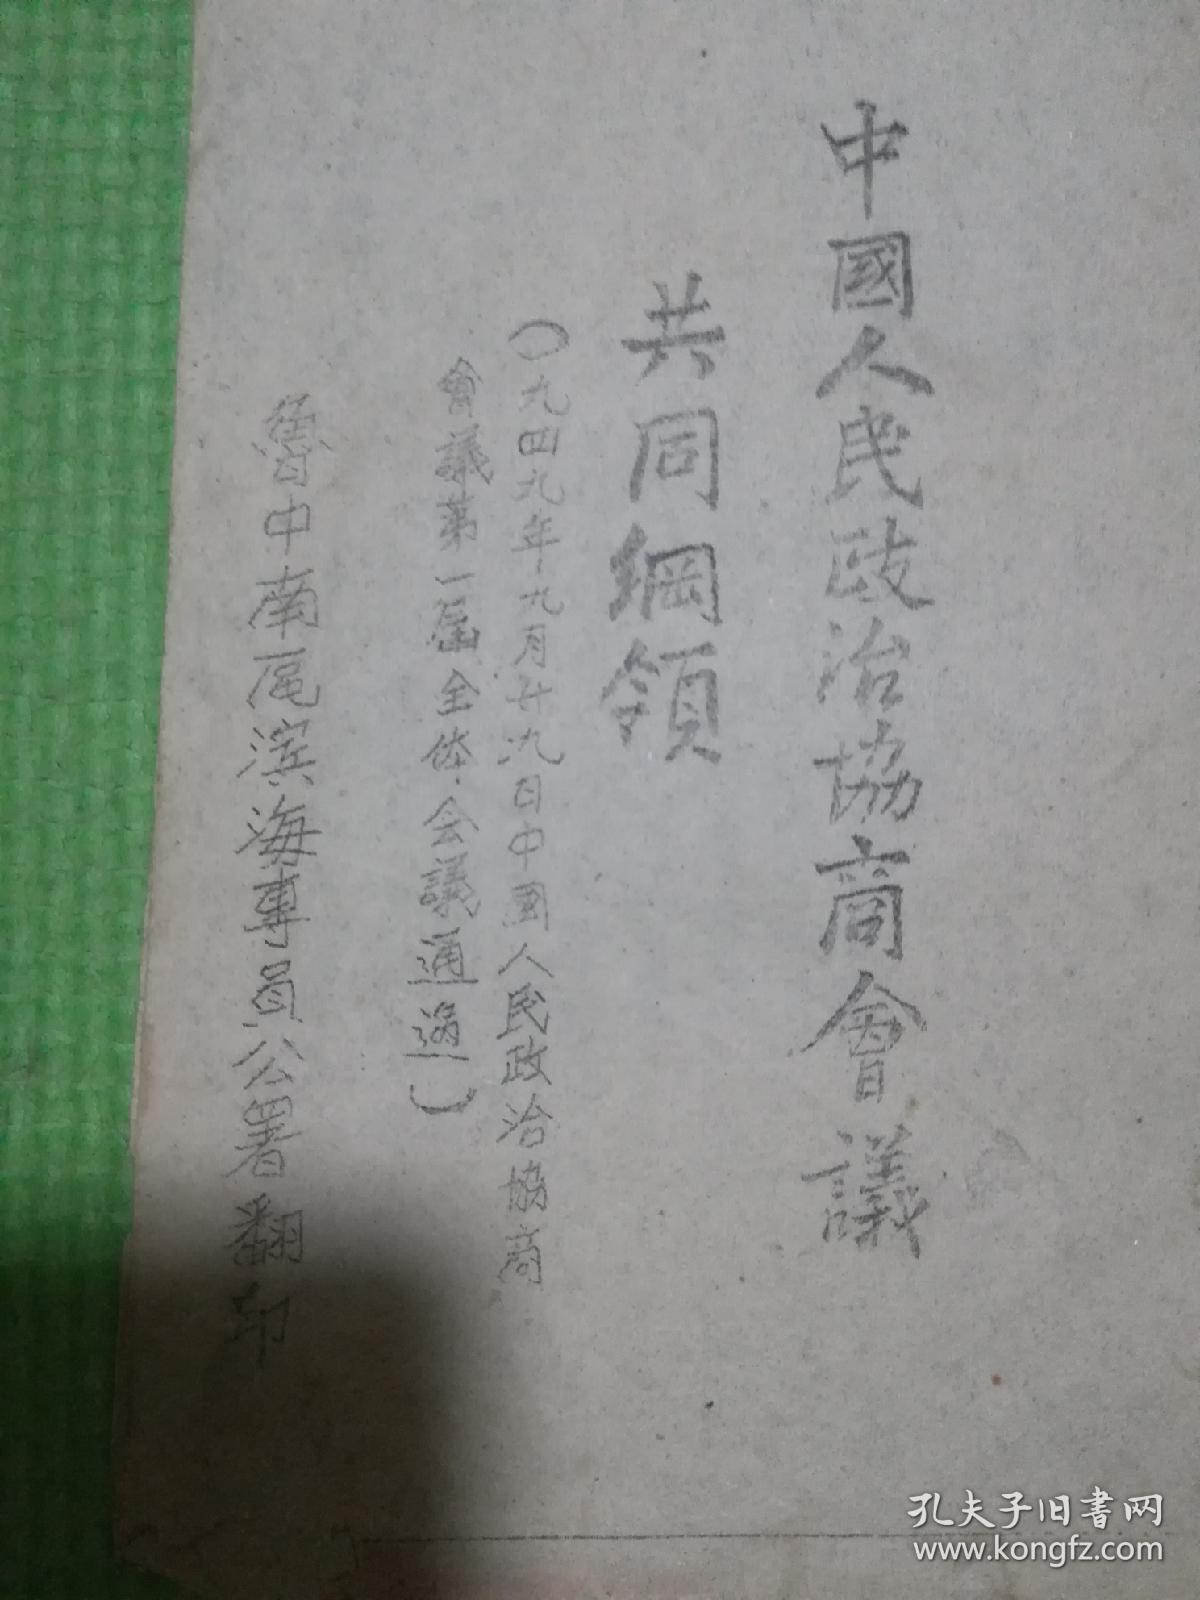 中國人民政治協商會議
共同綱領
(一九四九年九月廿九日中國人民政治協商
會議第一届全体会議通過)
魯中南區滨海專員公署翻印
孔夫子旧書网
www.kongfz.com